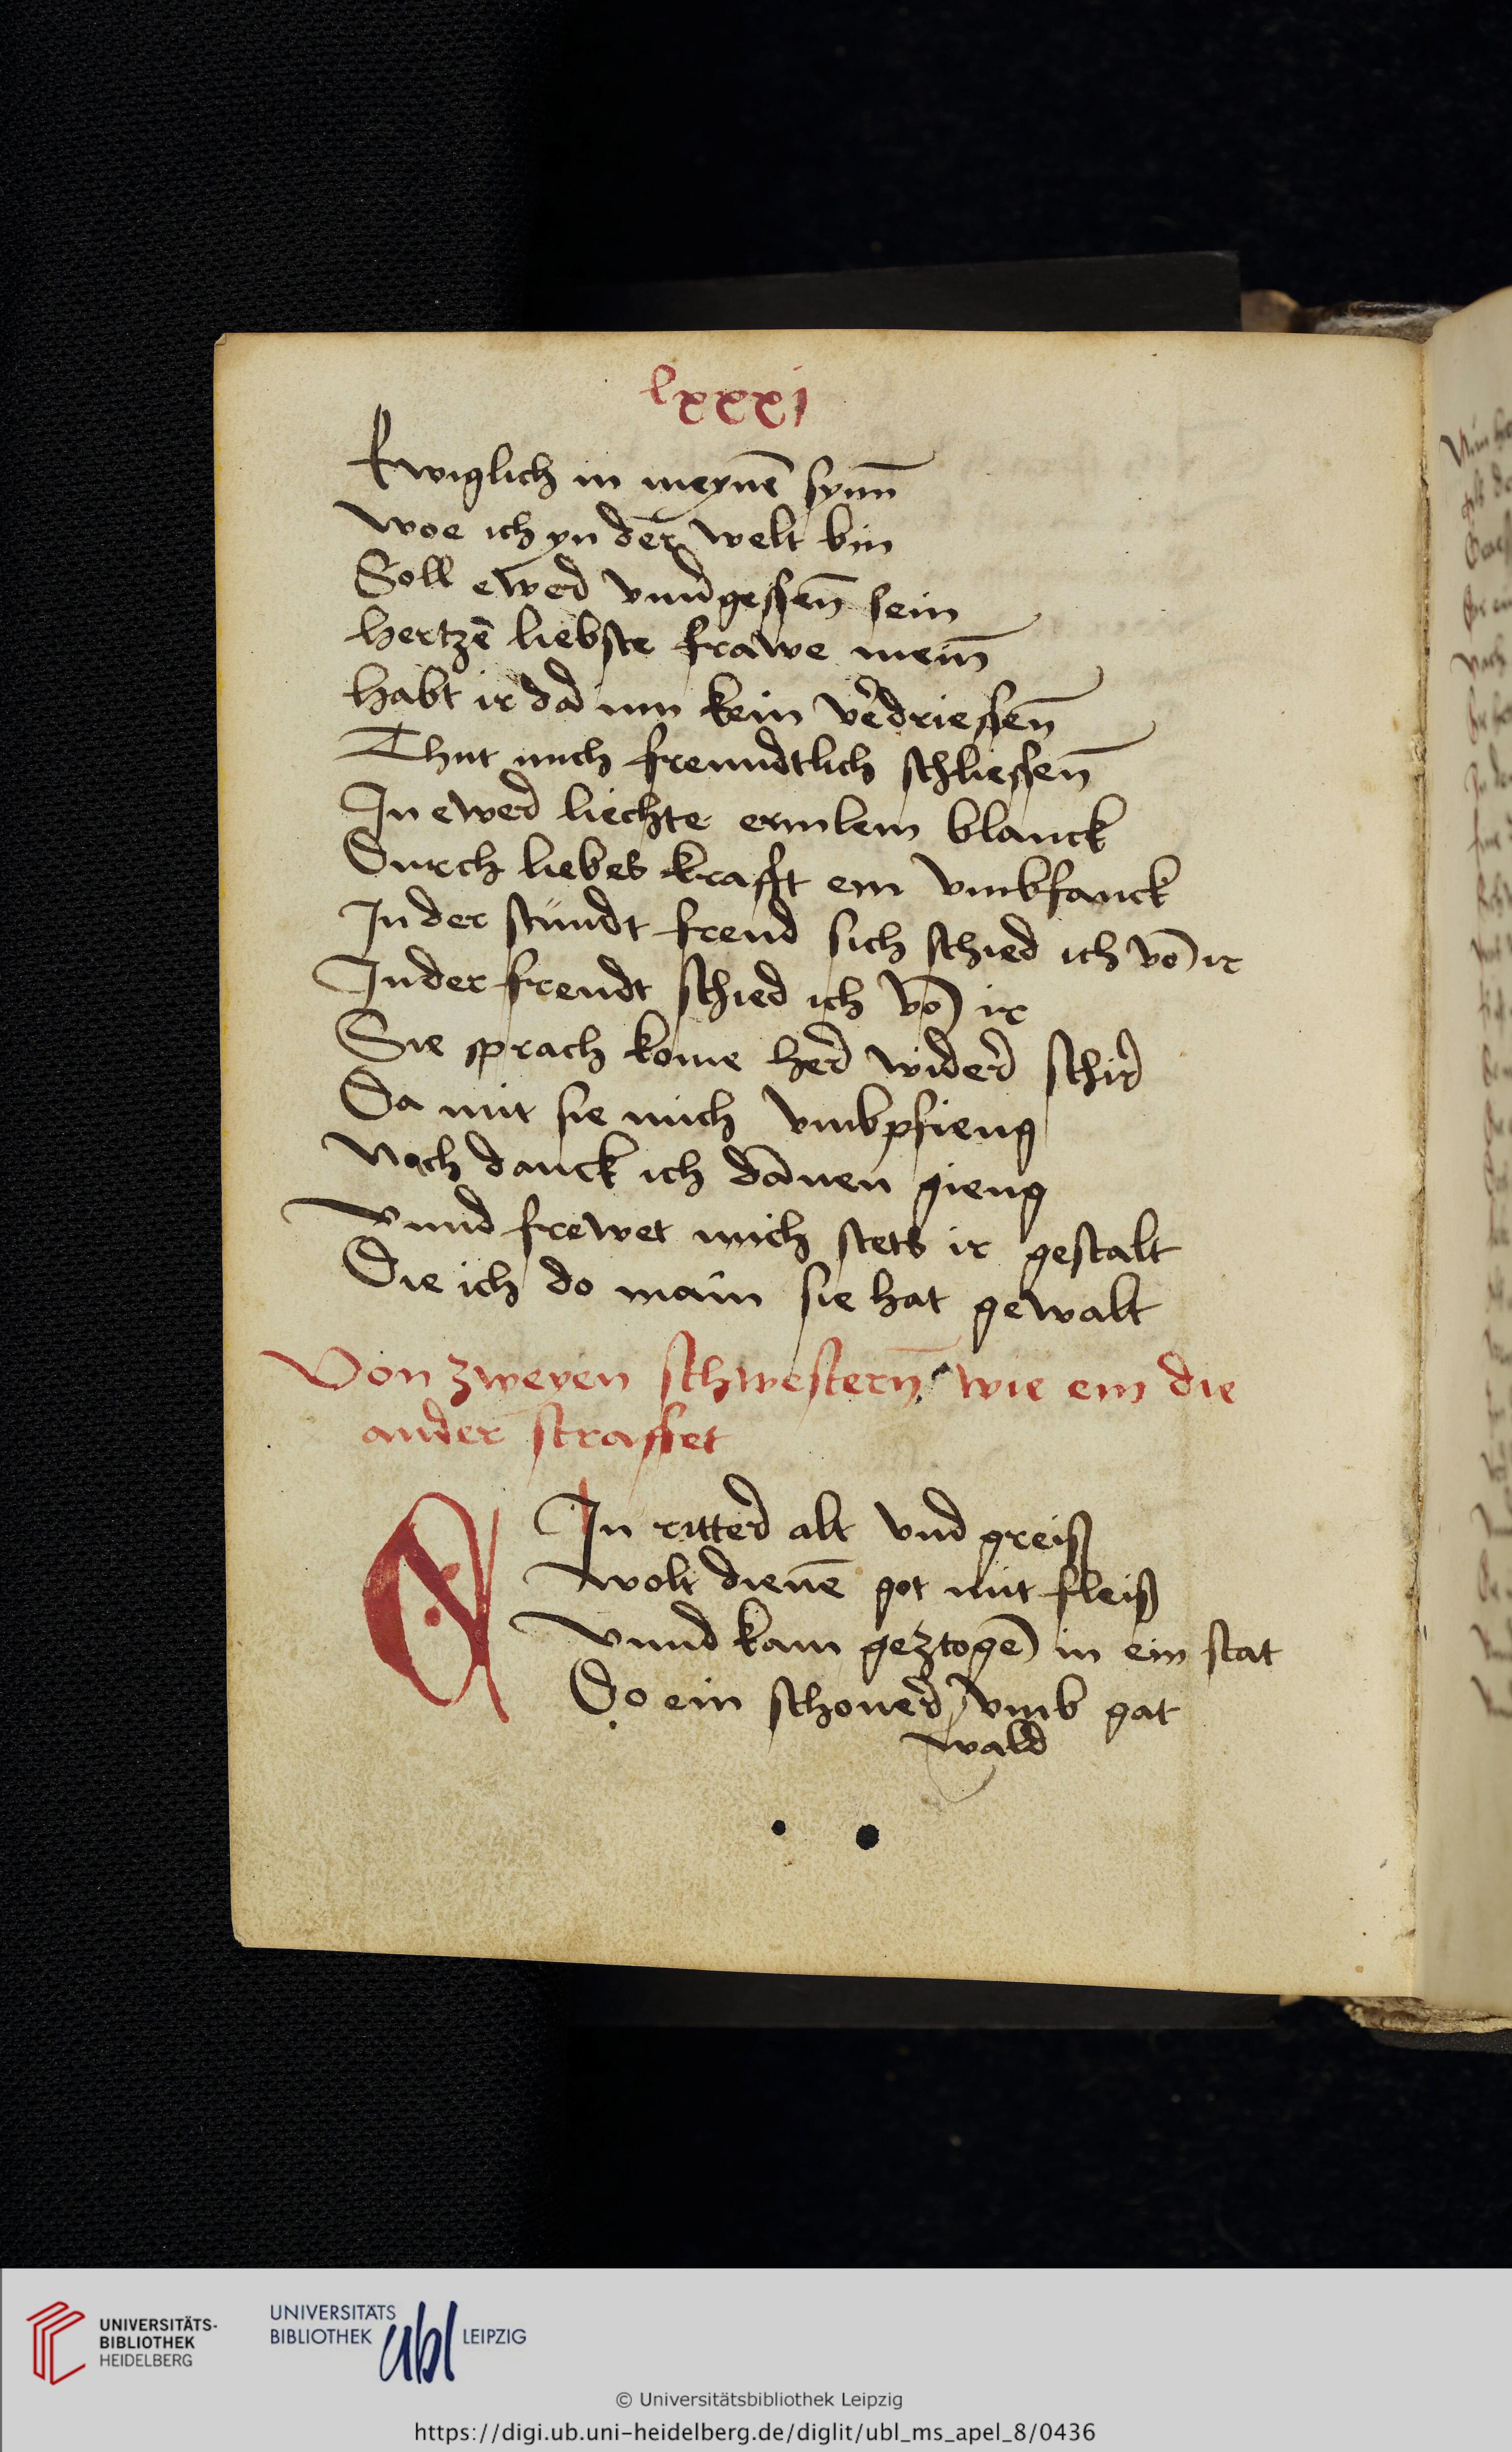 lxxxj
Ewiglich in meynē synn̄
Woe ich yn der welt bin
Soll ewer vnuergessen̄ sein
hertzē liebste frawe mein̄
habt ir dar inn kein vērdriessen̄
Thut mich freundtlich schliessen̄
In ewer liechte ermlein blanck
Durch liebes krafft ein vmbfanck
In der stundt freud sich schied ich vō ir
In der freudt schied ich vō ir
Sie sprach kome her wider schir
Da mit sie mich vmbpfieng
Noch danck ich dānen gieng
Vnnd frewet mich stets ir gestalt
Die ich do main sie hat gewalt
Von zweyen schwestern̄ wie ein die
ander straffet
EIn ritter alt vnd greiß
Wolt dienē got mit fleiß
Vnnd kam geztogē in ein stat
Do ein schoner vmb gat
wald
UNIVERSITÄTS-
BIBLIOTHEK
HEIDELBERG
UNIVERSITÄTS
BIBLIOTHEK ubl LEIPZIG
© Universitätsbibliothek Leipzig
https://digi.ub.uni-heidelberg.de/diglit/ubl_ms_apel_8/0436